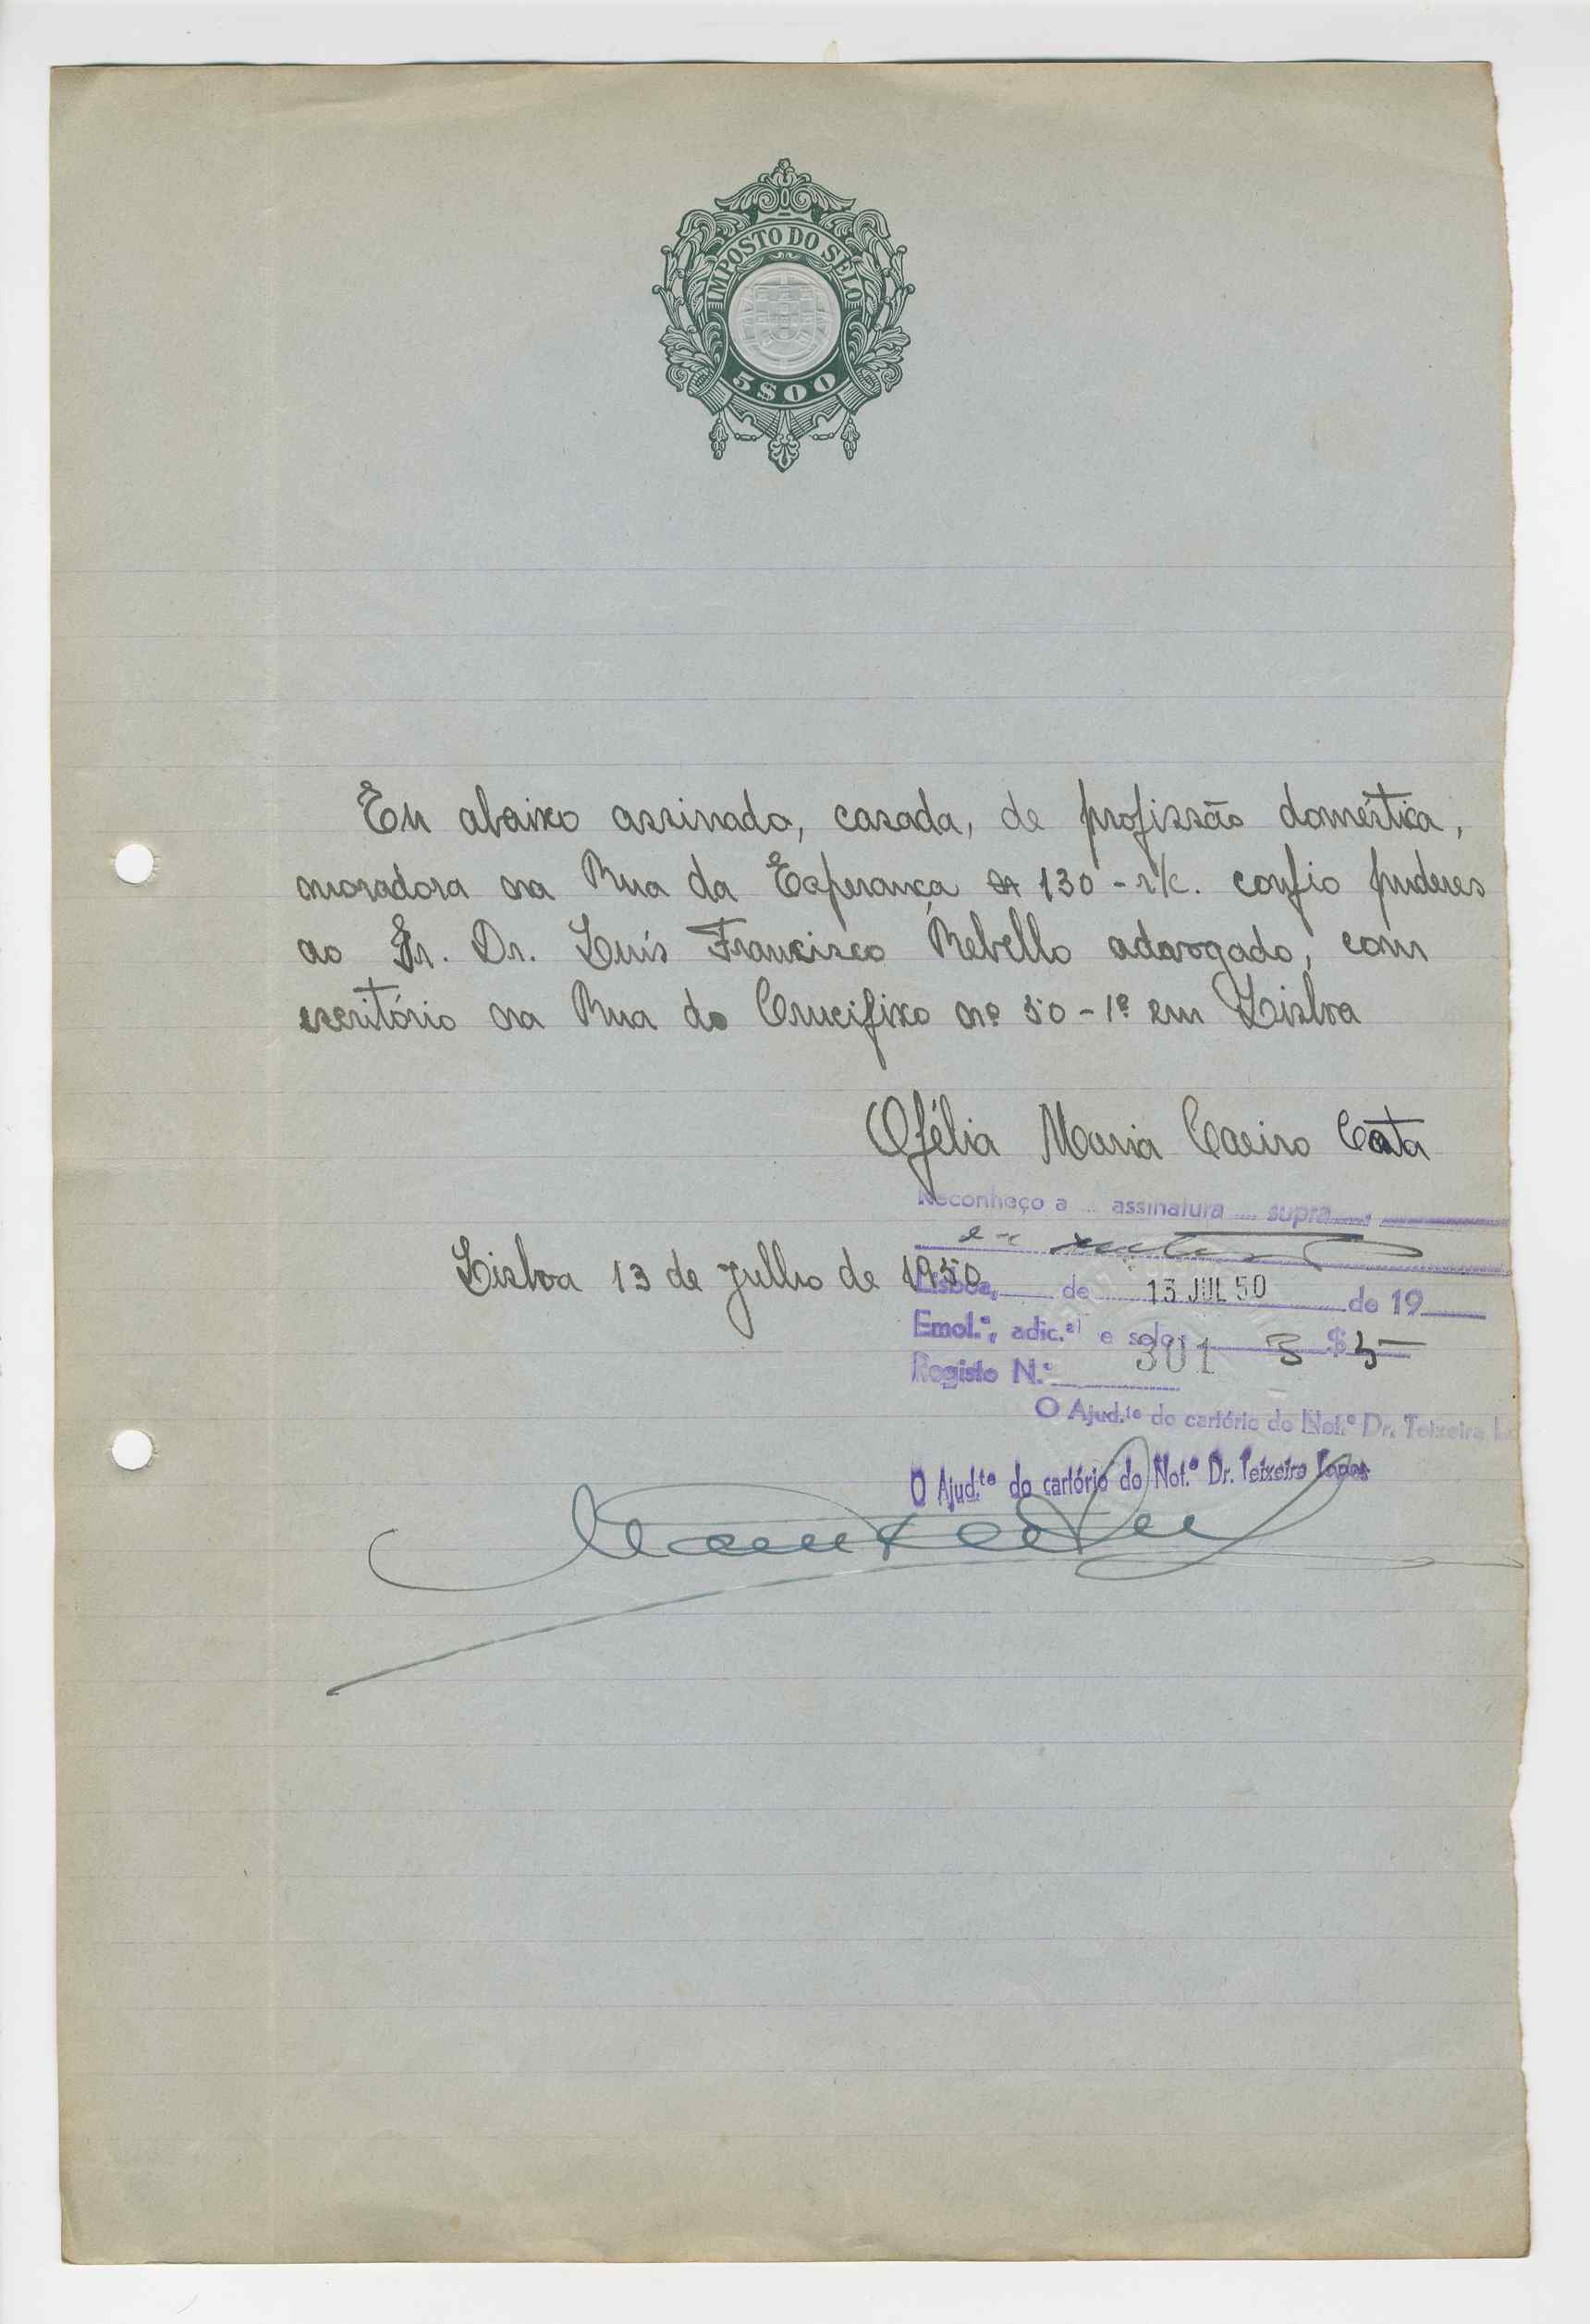 IMPOSTO DO SELO
5$00
Eu abaixo assinada, casada, de profissão doméstica,
moradora na Rua da Esperança 130 - r/c. confio puderes
ao Sr. Dr. Luís Francisco Rebello advogado, com
escritório na Rua do Crucifixo nº 50 - 1º em Lisboa
Ofélia Maria Caeiro Cata
Reconheço a assinatura supra
Lisboa 13 de julho de 1950
Lisboa, de 13 JUL 50 de 19
Emol.ᵒ, adic.ᵃˡ e selo 3 $ 5
Registo N.º 301
O Ajud.ᵗᵉ do cartório do Not.º Dr. Teixeira
O Ajud.ᵗᵉ do cartório do Not.º Dr. Teixeira Lopes